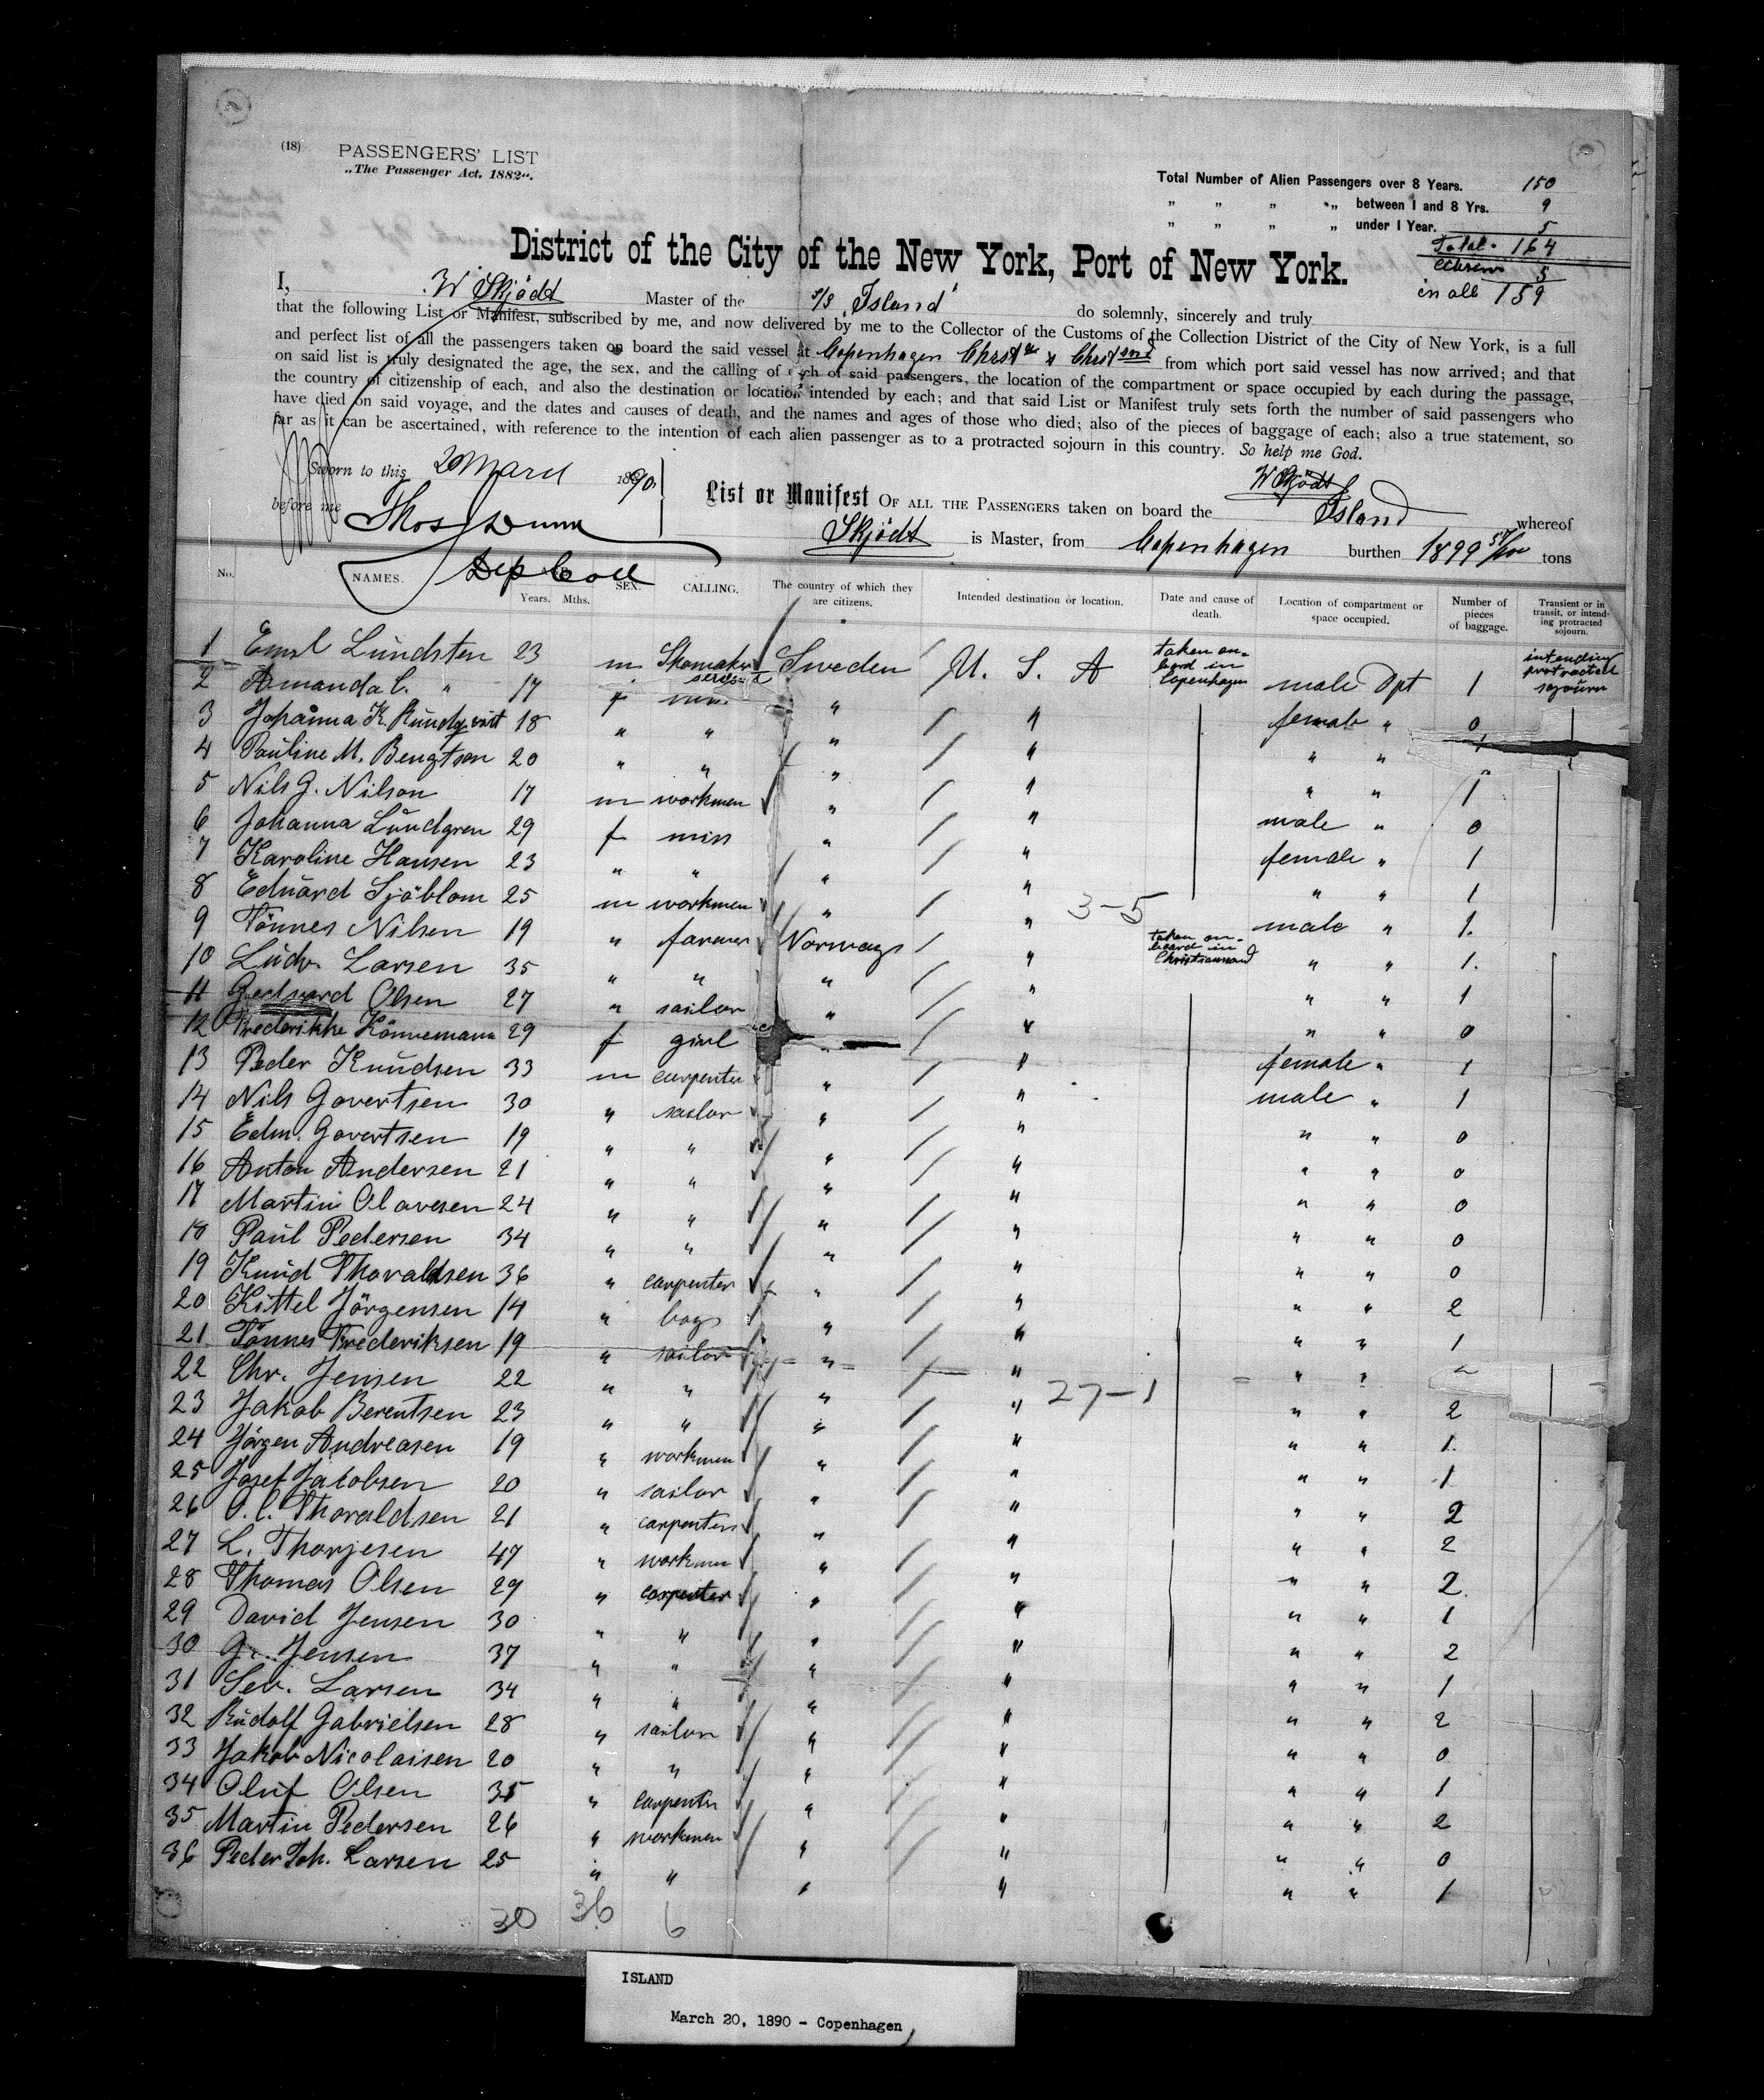 (18) PASSENGERS' LIST
„The Passenger Act, 1882“.
Total Number of Alien Passengers over 8 Years. 150
„ „ „ „ between 1 and 8 Yrs. 9
„ „ „ „ under 1 Year. 5
Total 164
5
in all 159
District of the City of the New York, Port of New York.
I, W Skjödt Master of the S/S „Island“ do solemnly, sincerely and truly
that the following List or Manifest, subscribed by me, and now delivered by me to the Collector of the Customs of the Collection District of the City of New York, is a full
and perfect list of all the passengers taken on board the said vessel at Copenhagen Christ & Christ from which port said vessel has now arrived; and that
on said list is truly designated the age, the sex, and the calling of each of said passengers, the location of the compartment or space occupied by each during the passage,
the country of citizenship of each, and also the destination or location intended by each; and that said List or Manifest truly sets forth the number of said passengers who
have died on said voyage, and the dates and causes of death, and the names and ages of those who died; also of the pieces of baggage of each; also a true statement, so
far as it can be ascertained, with reference to the intention of each alien passenger as to a protracted sojourn in this country. So help me God.
W Skjödt
Sworn to this 20 March 1890
before me Thos J Dunn
Dep Coll
List or Manifest OF ALL THE PASSENGERS taken on board the Island whereof
Skjödt is Master, from Copenhagen burthen 1899 57/100 tons
No. NAMES. Years. Mths. SEX. CALLING. The country of which they are citizens. Intended destination or location. Date and cause of death. Location of compartment or space occupied. Number of pieces of baggage. Transient or in transit, or intending protracted sojourn.
1 Ernst Lundsten 23 m Skomaker Sweden U. S. A taken on-bord in Copenhagen male Dpt 1 intending protracted sojourn
2 Amanda C. " 17 f " " female " 0
3 Johanna K. Rundqvist 18 " " " " " "
4 Pauline M. Bengtson 20 " " " " " " 1
5 Nils G. Nilson 17 m workmen " " male " 0
6 Johanna Lundgren 29 f miss " " female " 1
7 Karoline Hansen 23 " " " " " " 1
8 Eduard Sjöblom 25 m workmen " " 3-5 male " 1.
9 Tönnes Nilsen 19 " farmer Norway " taken on-board in Christiansand " " 1.
10 Ludv. Larsen 35 " " " " " " 1
11 Gerhard Olsen 27 " sailor " " " " 0
12 Frederikke Könnemann 29 f girl " " female " 1
13 Peder Knudsen 33 m carpenter " " male " 1
14 Nils Govertsen 30 " sailor " " " " 0
15 Edm. Govertsen 19 " " " " " " 0
16 Anton Andersen 21 " " " " " " 0
17 Martin Olavesen 24 " " " " " " 0
18 Paul Pedersen 34 " " " " " " 0
19 Knud Thoraldsen 36 " carpenter " " " " 2
20 Kittel Jörgensen 14 " boy " " " " 1
21 Tönnes Frederiksen 19 " sailor " " " "
22 Chr. Jensen 22 " " " " 27-1 " " 2
23 Jakob Berentsen 23 " " " " " " 1.
24 Jörgen Andreasen 19 " workmen " " " " 1
25 Josef Jacobsen 20 " sailor " " " " 2
26 O. C. Thoraldsen 21 " carpenters " " " " 2
27 L. Thorjesen 47 " workmen " " " " 2.
28 Thomas Olsen 29 " carpenter " " " " 1
29 David Jensen 30 " " " " " " 2
30 G. Jensen 37 " " " " " " 1
31 Sev. Larsen 34 " " " " " " 2
32 Rudolf Gabrielsen 28 " sailor " " " " 0
33 Jakob Nicolaisen 20 " " " " " " 1
34 Oluf Olsen 35 " carpenter " " " " 2
35 Martin Pedersen 26 " workmen " " " " 0
36 Peder Joh. Larsen 25 " " " " " " 1
30 36 6
ISLAND
March 20, 1890 - Copenhagen